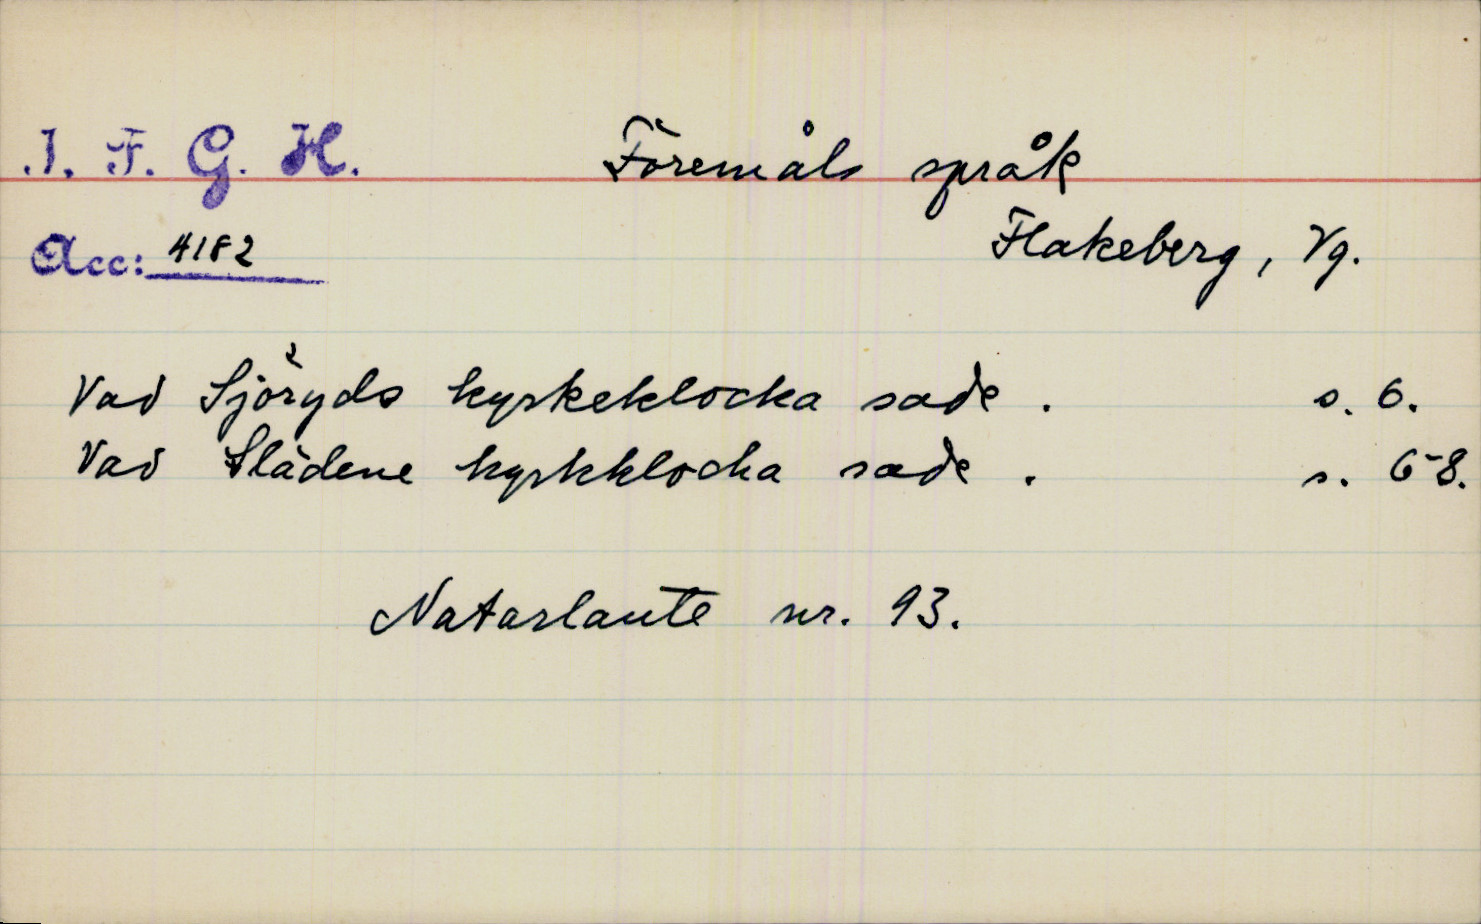 I. F. G. H. Föremåls språk
Acc: 4182 Flakeberg, Vg.
Vad Sjöryds kyrkeklocka sade. s. 6.
Vad Slädene kyrkklocka sade. s. 6-8.
Naturlaute nr. 93.